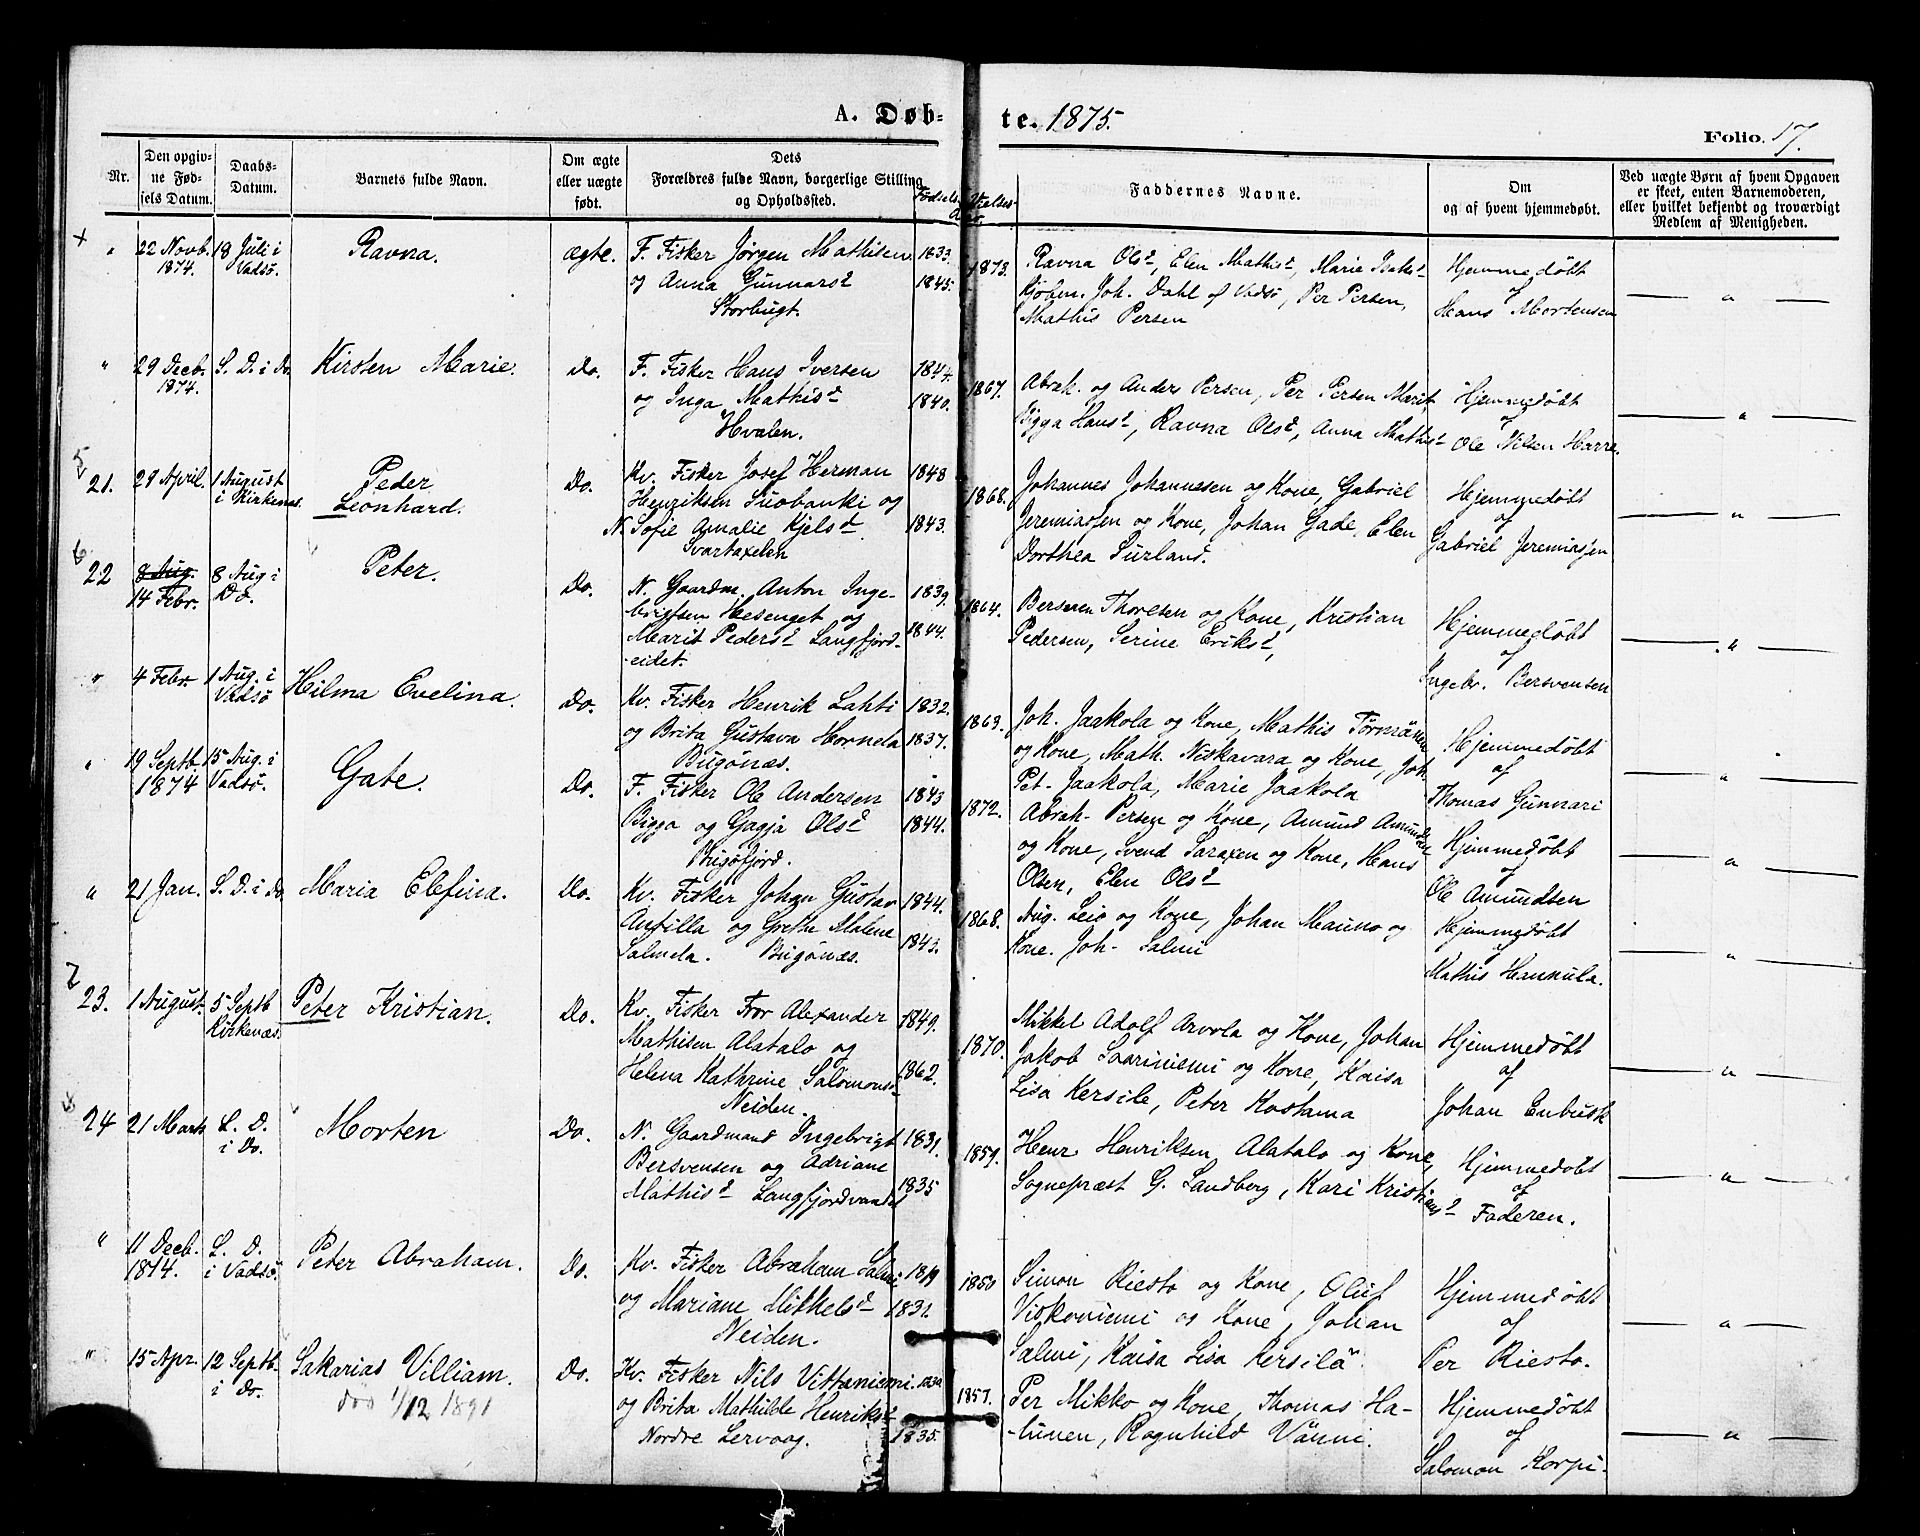 A. Døb-
te. 1875.
Folio. 17.
Nr.
Den opgiv-
ne Fød-
sels Datum.
Daabs-
Datum.
Barnets fulde Navn.
Om ægte
eller uægte
født.
Dets
Forældres fulde Navn, borgerlige Stilling
og Opholdssted.
Fødsels
Aar.
Faddernes Navne.
Om
og af hvem hjemmedøbt.
Ved uægte Børn af hvem Opgaven
er skeet, enten Barnemoderen,
eller hvilket bekjendt og troværdigt
Medlem af Menigheden.
+ " 22 Novb. 1874. 18 Juli i Vadsö. Ravna. ægte. F. Fisker Jörgen Mathisen 1833.
og Anna Gunnarsd 1845.
Storbugt.
1873. Ravna Olsd, Elen Mathisd, Marie Isaksd
Kjöbm. Joh. Dahl af Vadsö, Per Persen,
Mathis Persen
Hjemmedöbt
af
Hans Mortensen
— " —
" 29 Decb. 1874. S. D. i Do. Kirsten Marie. Do. F. Fisker Hans Iversen 1844.
og Inga Mathisd 1840.
Hvalen.
1867. Abrah. og Anders Persen, Per Persen Marit,
Bigga Hansd, Ravna Olsd, Anna Mathisd
Hjemmedöbt
af
Ole Nilsen Harre.
— " —
5
21. 29 April. 1 August i Kirkenæs. Peder Leonhard. Do. Kv. Fisker Josef Herman 1848
Henriksen Suobanki og
N. Sofie Amalie Kjelsd. 1843.
Svartaxelen
1868. Johannes Johannesen og Kone, Gabriel
Jeremiassen og Kone, Johan Gade, Elen
Dorthea Surland.
Hjemmedöbt
af
Gabriel Jeremiassen
— " —
6
22 8 Aug. 14 Febr. 8 Aug i Do. Peter. Do. N. Gaardm. Anton Inge- 1839.
brigtsen Hesenget og
Marit Pedersd Langfjord- 1844.
-eidet.
1864. Bersven Thoresen og Kone, Kristian
Pedersen, Serine Eriksd,
Hjemmedöbt
af
Ingebr. Bersvensen
— " —
" 4 Febr. 1 Aug. i Vadsö Hilma Evelina. Do. Kv. Fisker Henrik Lahti 1832.
og Brita Gustava Hornela 1837.
Bugönæs.
1863. Joh. Jaakola og Kone, Mathis Törmänen
og Kone, Math. Niskavara og Kone, Joh.
Pet. Jaakola, Marie Jaakola
Hjemmedöbt
af
Thomas Gunnari
— " —
" 19 Septb. 1874 15 Aug. i Vadsö. Gate. Do. F. Fisker Ole Andersen 1843
Bigga og Gagja Olsd 1844.
Bugöfjord.
1872. Abrah. Persen og Kone, Amund Amundsen
og Kone, Svend Saraxen og Kone, Hans
Olsen, Elen Olsd
Hjemmedöbt
af
Ole Amundsen
— " —
" 21 Jan. S. D. i Do. Maria Elefina. Do. Kv. Fisker Johan Gustav 1844.
Antilla og Grethe Malene 1843.
Salmela. Bugönæs.
1868. Aug. Leio og Kone, Johan Mauno og
Kone. Joh. Salmi
Hjemmedöbt
af
Mathis Hannula.
— " —
7
23. 1 August. 5 Septb Kirkenæs. Peter Kristian. Do. Kv. Fisker Fror Alexander 1849.
Mathisen Alatalo og
Helena Kathrine Salomonsd 1862.
Neiden.
1870. Mikkel Adolf Arvola og Kone, Johan
Jakob Saariniemi og Kone, Kaisa
Lisa Kersile, Peter Kostama
Hjemmedöbt
af
Johan Enbusk
— " —
8
24 21 Marts S. D. i Do. Morten Do. N. Gaardmand Ingebrigt 1831.
Bersvensen og Adriane
Mathisd Langfjordvandet 1835
1859. Henr Henriksen Alatalo og Kone,
Sognepræst G. Sandberg, Kari Kristiansd
Hjemmedöbt
af
Faderen.
— " —
" 11 Decb. 1874. S. D. i Vadsö Peter Abraham. Do. Kv. Fisker Abraham Salmi 1819
og Mariane Mikkelsd 1831.
Neiden.
1850 Simon Riesto og Kone, Oluf
Viskoniemi og Kone, Johan
Salmi, Kaisa Lisa Kersilä
Hjemmedöbt
af
Per Riesto.
— " —
" 15 Apr. 12 Septb. i Do. Sakarias Villiam. Do. Kv. Fisker Nils Vittaniemi.
död 1/12 1891
og Brita Mathilde Henriksd 1835.
Nordre Lervaag.
1857. Per Mikko og Kone, Thomas Ha-
-lunen, Ragnhild Vänni.
Hjemmedöbt
af
Salomon Korpi.
— " —